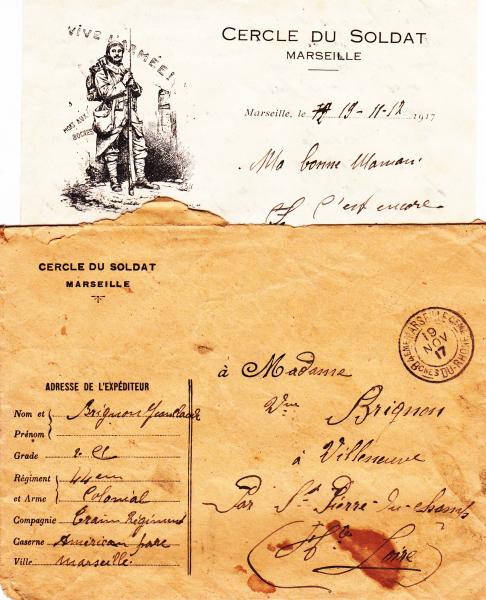 VIVE L'ARMÉE!
CERCLE DU SOLDAT
MARSEILLE
Marseille, le 19-11-12 1917
Ma bonne Maman
c'est encore
CERCLE DU SOLDAT
MARSEILLE
MARSEILLE
19
NOV
17
BCHES DU-RHONE
ADRESSE DE L'EXPÉDITEUR
Nom et Prénom Brignon
Grade 2e Cl
Régiment et Arme 44em Colonial
Compagnie Train Régiment
Caserne American parc
Ville Marseille
à Madame
Vve Brignon
à Villeneuve
Par St Pierre-du-champ
(Hte Loire)